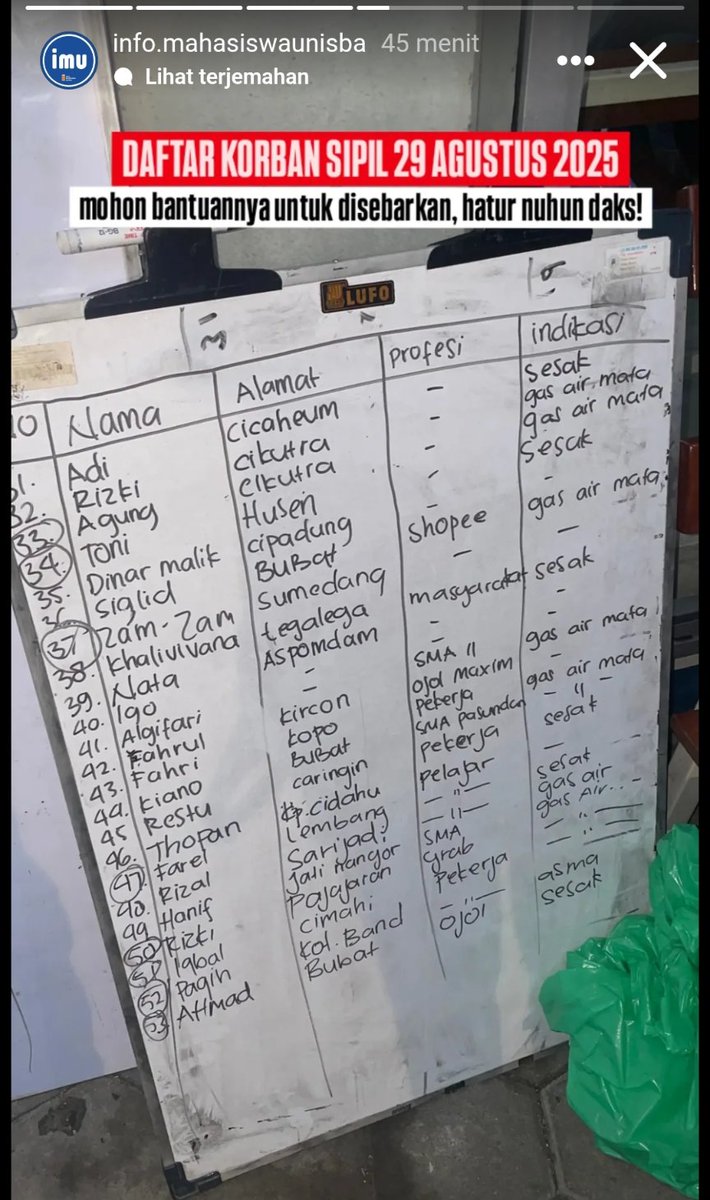 info.mahasiswaunisba 45 menit
imu
Lihat terjemahan
DAFTAR KORBAN SIPIL 29 AGUSTUS 2025
mohon bantuannya untuk disebarkan, hatur nuhun daks!
LUFO
Nama Alamat profesi indikasi
31. Adi Cicaheum - sesak
32. Rizki Cikutra - gas air mata
33. Agung Cikutra - gas air mata
34. Toni Husen - sesak
35. Dinar malik cipadung - -
36. Siglid BuBat shopee gas air mata
37. Zam-Zam Sumedang - -
38. Khalivivana tegalega masyarakat sesak
39. Nata ASpomdam - -
40. Igo - - gas air mata
41. Algifari - SMA 11 -
42. Fahrul kircon ojol maxim gas air mata
43. Fahri kopo pekerja - " -
44. Kiano BuBat SMA Pasundan sesak
45 Restu caringin pekerja -
46. Thopan kp.cidahu pelajar sesak
47. Farel Lembang - " - gas air
48. Rizal Sarijadi - " - gas Air..-
49 Hanif Jatinangor SMA - " -
50 Rizki Pajajaran Grab - " -
51 Iqbal Cimahi Pekerja asma
52 Pagih kot. Band - " - sesak
53 Ahmad Bubat ojol